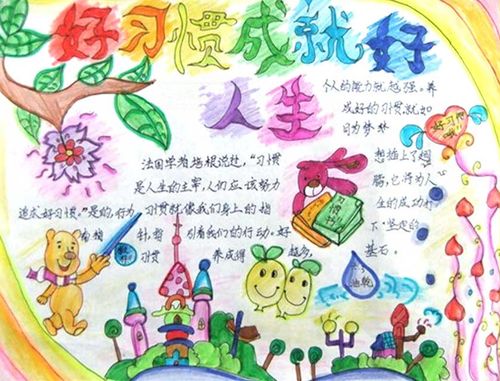 好习惯成就好
人生
法国学者培根说过，“习惯
是人生的主宰，人们应该努力
追求好习惯。”是的，行为习惯就像我们身上的指
针，指引着我们的行动。好
习惯养成得越多，
个人的能力就越强。养
成好的习惯，就如
同为梦
想插上了翅
膀，它将为人
生的成功打
下坚定的
基石。
好习惯
习惯